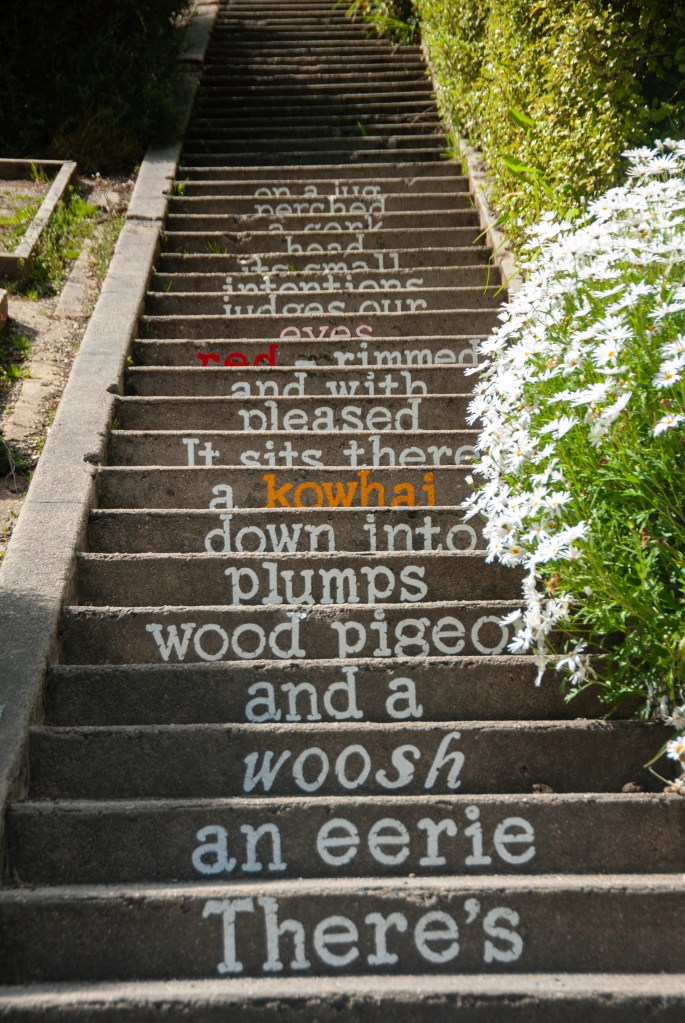 There's
an eerie
woosh
and a
wood pigeo
plumps
down into
a kowhai
It sits there
pleased
and with
red - rimmed
eyes
judges our
intentions
its small
head
a cork
perched
on a jug